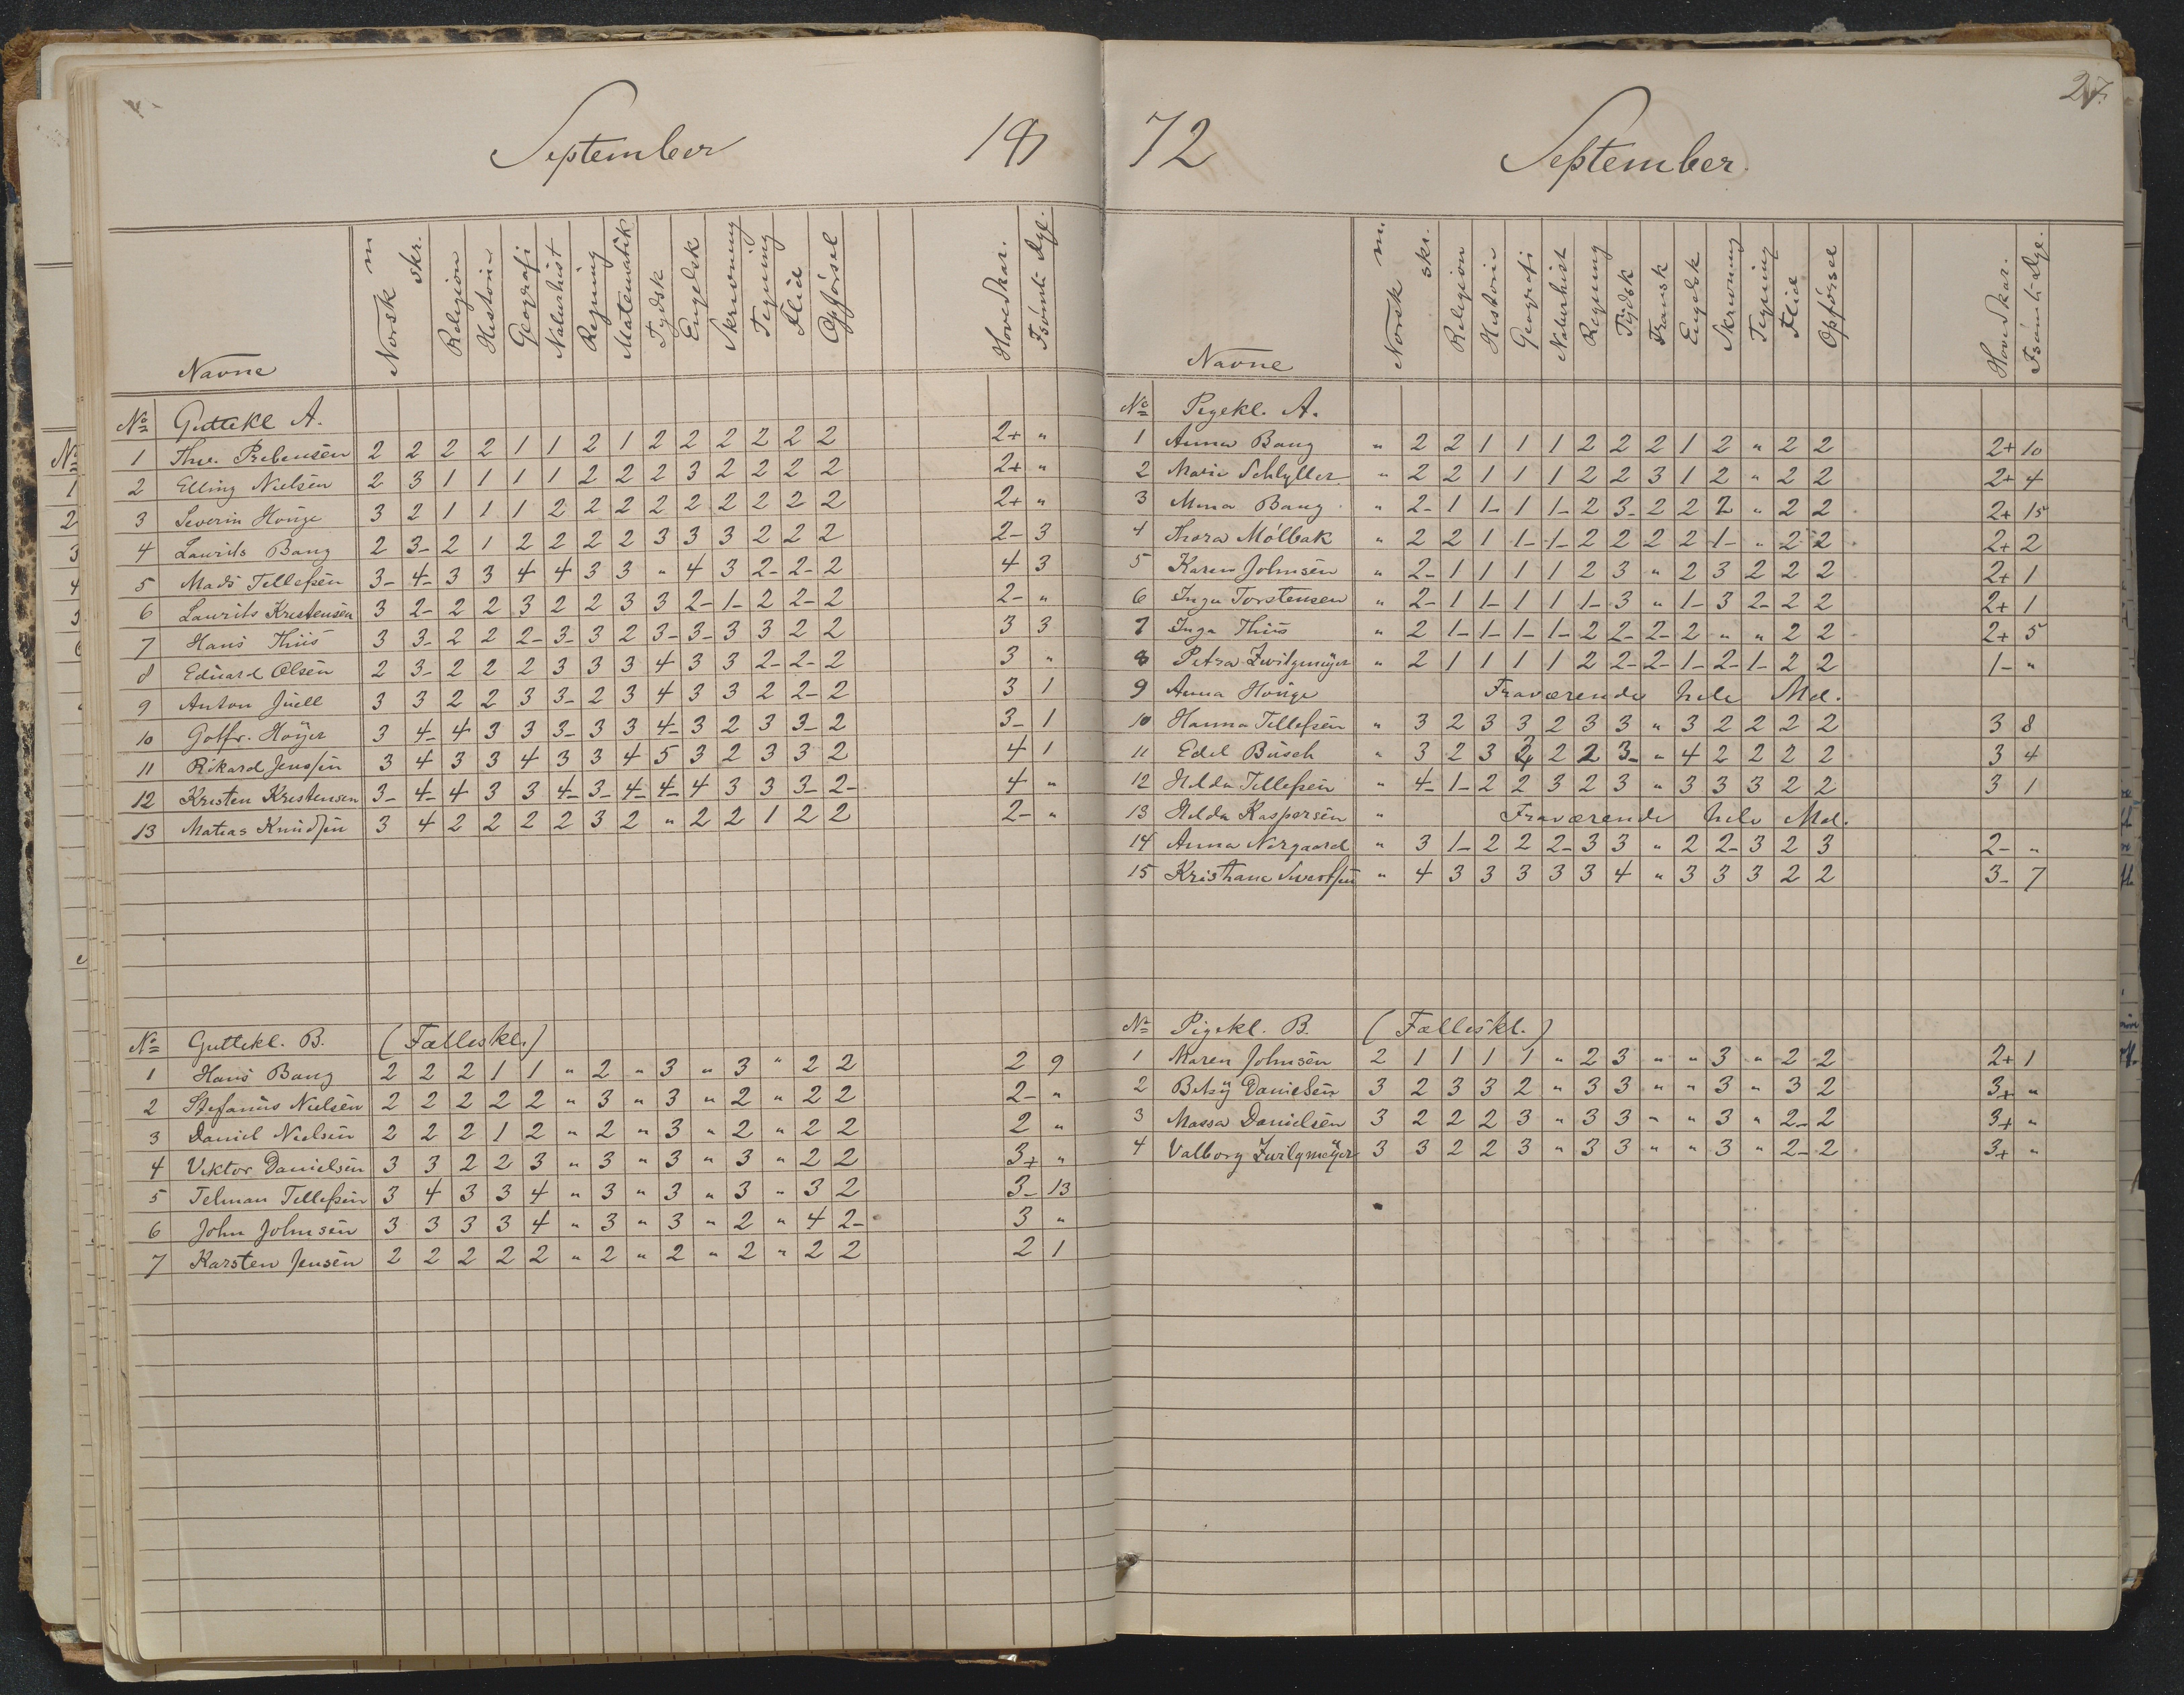 September 187
Navne Norsk m skr. Religion Historie Geografi Naturhist Regning Matematik Tydsk Engelsk Skrivning Tegning Flid Opførsel Hovedkar. Forsömte Dge.
No Guttekl A.
1 Thv. Prebensen 2 2 2 2 1 1 2 1 2 2 2 2 2 2 2+ "
2 Elling Nielsen 2 3 1 1 1 1 2 2 2 3 2 2 2 2 2+ "
3 Severin Houge 3 2 1 1 1 2 2 2 2 2 2 2 2 2 2+ "
4 Laurits Bang 2 3- 2 1 2 2 2 2 3 3 3 2 2 2 2- 3
5 Mads Tellefsen 3- 4- 3 3 4 4 3 3 " 4 3 2- 2- 2 4 3
6 Laurits Kristensen 3 2- 2 2 3 2 2 3 3 2- 1- 2 2- 2 2- "
7 Hans Thiis 3 3- 2 2 2- 3- 3 2 3- 3- 3 3 2 2 3 3
8 Eduard Olsen 2 3- 2 2 2 3 3 3 4 3 3 2- 2- 2 3 "
9 Anton Juell 3 3 2 2 3 3- 2 3 4 3 3 2 2- 2 3 1
10 Golfr. Höyer 3 4- 4 3 3 3- 3 3 4- 3 2 3 3- 2 3- 1
11 Rikard Jenssen 3 4 3 3 4 3 3 4 5 3 2 3 3 2 4 1
12 Kristen Kristensen 3- 4- 4 3 3 4- 3- 4- 4- 4 3 3 3- 2- 4 "
13 Matias Knudsen 3 4 2 2 2 2 3 2 " 2 2 1 2 2 2- "
No Guttekl. B. (Fælleskl.)
1 Hans Bang 2 2 2 1 1 " 2 " 3 " 3 " 2 2 2 9
2 Stefanus Nielsen 2 2 2 2 2 " 3 " 3 " 2 " 2 2 2- "
3 Daniel Nielsen 2 2 2 1 2 " 2 " 3 " 2 " 2 2 2 "
4 Viktor Danielsen 3 3 2 2 3 " 3 " 3 " 3 " 2 2 3+ "
5 Telman Tellefsen 3 4 3 3 4 " 3 " 3 " 3 " 3 2 3- 13
6 John Johnsen 3 3 3 3 4 " 3 " 3 " 2 " 4 2- 3 "
7 Karsten Jensen 2 2 2 2 2 " 2 " 2 " 2 " 2 2 2 1
72 September. 27.
Navne Norsk m. skr. Religion Historie Geografi Naturhist Regning Tydsk Fransk Engelsk Skrivning Tegning Flid Opførsel Hovedkar. Forsömte Dge.
No Pigekl. A.
1 Anna Bang " 2 2 1 1 1 2 2 2 1 2 " 2 2 2+ 10
2 Marie Schlytter " 2 2 1 1 1 2 2 3 1 2 " 2 2 2+ 4
3 Mina Bang " 2- 1 1- 1 1- 2 3- 2 2 2 " 2 2 2+ 15
4 Thora Mölbak " 2 2 1 1- 1- 2 2 2 2 1- " 2 2 2+ 2
5 Karen Johnsen " 2- 1 1 1 1 2 3 " 2 3 2 2 2 2+ 1
6 Inga Torstensen " 2- 1 1- 1 1 1- 3 " 1- 3 2- 2 2 2+ 1
7 Inga Thiis " 2 1- 1- 1- 1- 2 2- 2- 2 " " 2 2 2+ 5
8 Petra Zwilgmeÿer " 2 1 1 1 1 2 2- 2- 1- 2- 1- 2 2 1- "
9 Anna Houge Fraværende hele Md.
10 Hanna Tellefsen " 3 2 3 3 2 3 3 " 3 2 2 2 2 3 8
11 Edel Busch " 3 2 3 2 2 2 3- " 4 2 2 2 2 3 4
12 Hilda Tellefsen " 4- 1- 2 2 3 2 3 " 3 3 3 2 2 3 1
13 Hilda Kaspersen " Fraværende hele Md.
14 Anna Nørgaard " 3 1- 2 2 2- 3 3 " 2 2- 3 2 3 2- "
15 Kristiane Sivertsen " 4 3 3 3 3 3 4 " 3 3 3 2 2 3- 7
No Pigekl. B. (Fælleskl.)
1 Maren Johnsen 2 1 1 1 1 " 2 3 " " 3 " 2 2 2+ 1
2 Betsÿ Danielsen 3 2 3 3 2 " 3 3 " " 3 " 3 2 3+ "
3 Massa Danielsen 3 2 2 2 3 " 3 3 " " 3 " 2- 2 3+ "
4 Valborg Zwilgmeÿer 3 3 2 2 3 " 3 3 " " 3 " 2- 2 3+ "